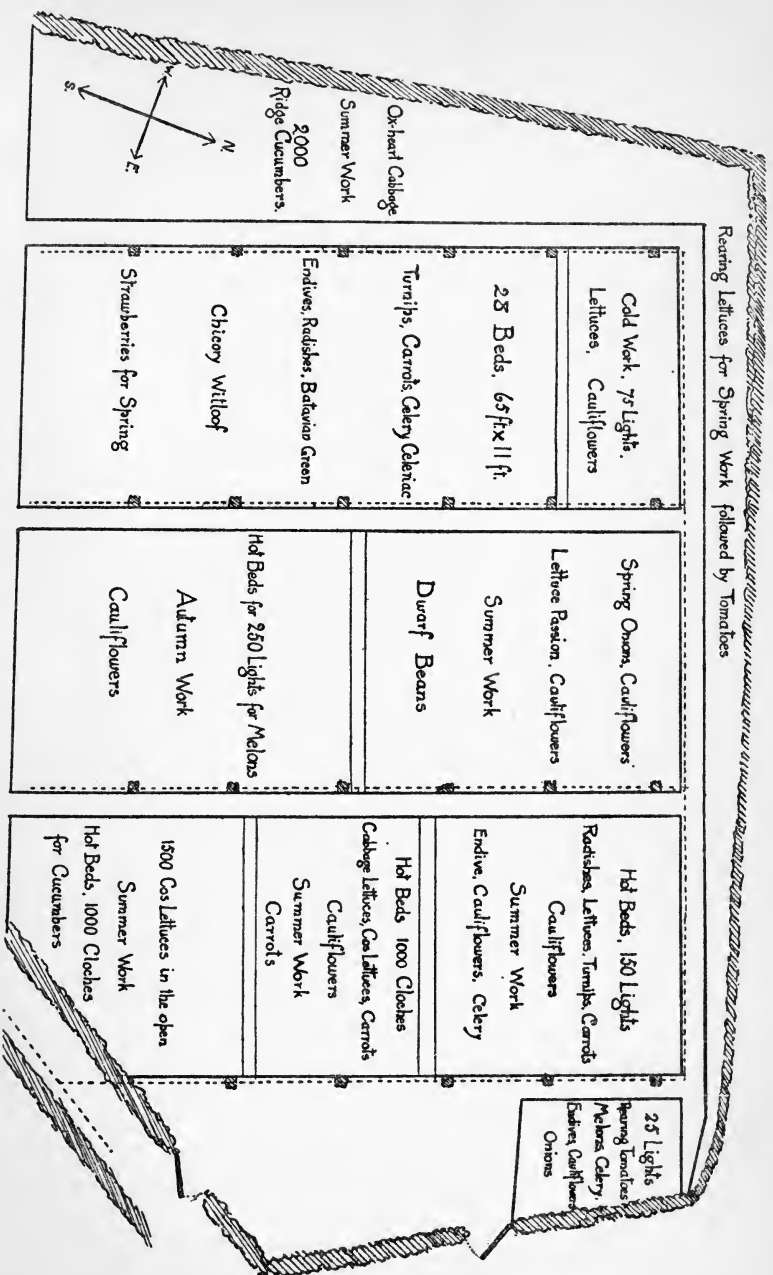 Rearing Lettuces for Spring Work followed by Tomatoes
Ox-heart Cabbage
Summer Work
2000
Ridge Cucumbers.
N.
S.
E.
W.
Cold Work, 75 Lights.
Lettuces, Cauliflowers
28 Beds, 65ft x 11 ft.
Turnips, Carrots, Celery Celeriac
Endives, Radishes, Batavian Green
Chicory Witloof
Strawberries for Spring
Spring Onions, Cauliflowers
Lettuce Passion, Cauliflowers
Summer Work
Dwarf Beans
Hot Beds for 250 Lights for Melons
Autumn Work
Cauliflowers
Hot Beds, 150 Lights
Radishes, Lettuces, Turnips, Carrots
Cauliflowers
Summer Work
Endive, Cauliflowers, Celery
Hot Beds 1000 Cloches
Cabbage Lettuces, Cos Lettuces, Carrots
Cauliflowers
Summer Work
Carrots
1500 Cos Lettuces in the open
Summer Work
Hot Beds, 1000 Cloches
for Cucumbers
25 Lights
Rearing Tomatoes
Melons, Celery,
Endives, Cauliflowers
Onions